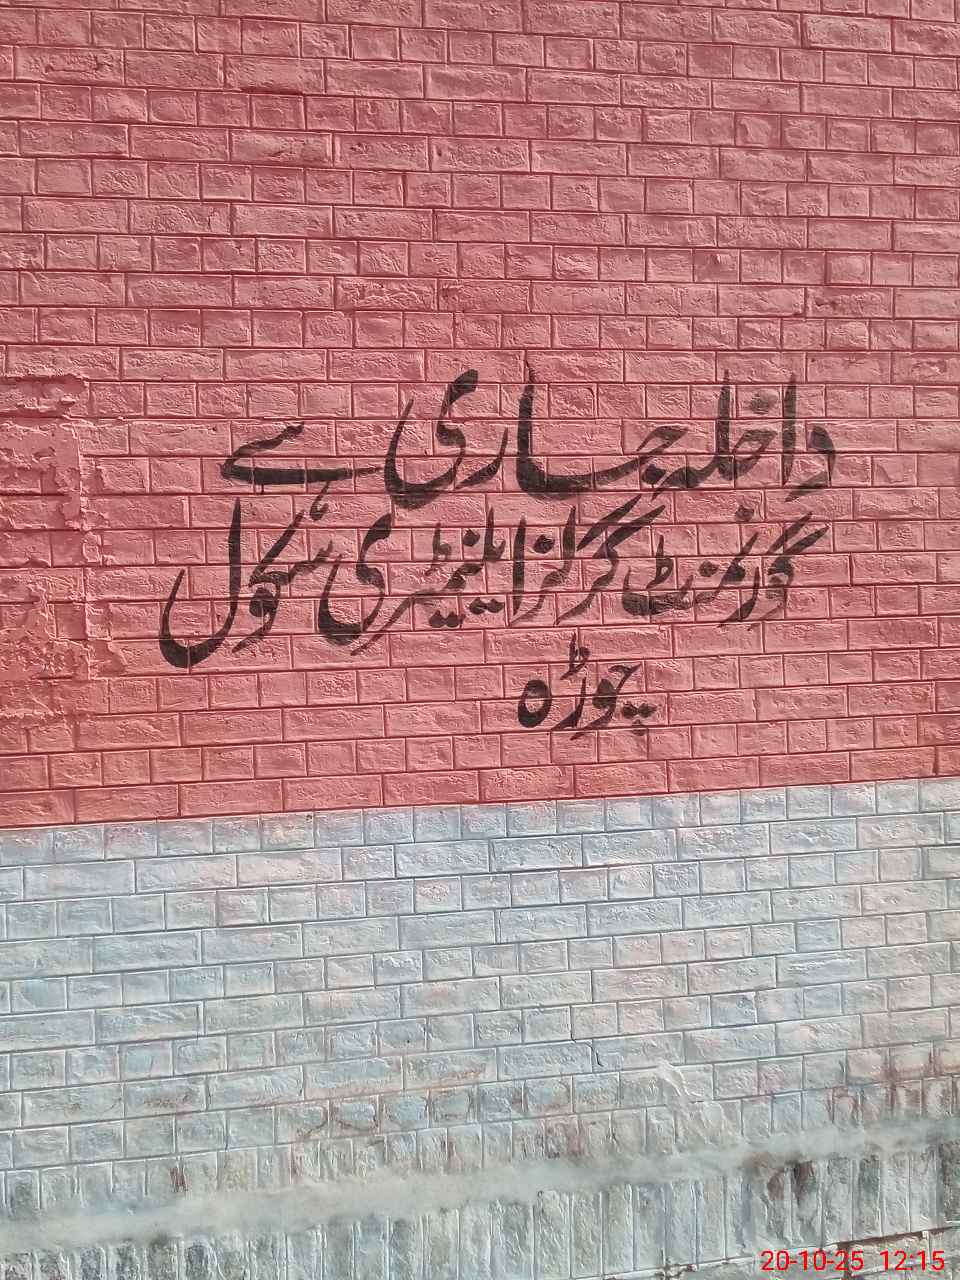 داخلہ جاری ہے
گورنمنٹ گرلز ایلیمنٹری سکول
چوڑہ
20-10-25 12:15